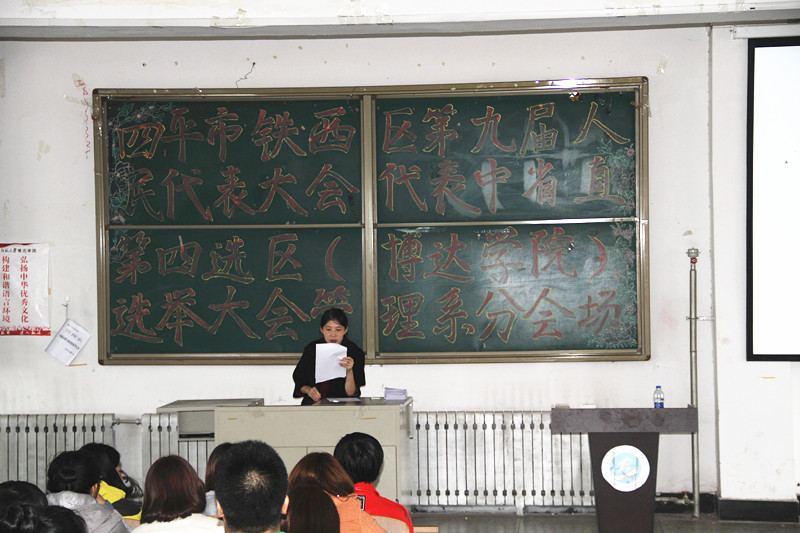 四平市铁西区第九届人
民代表大会代表中省直
第四选区（博达学院）
选举大会管理系分会场
弘扬中华优秀文化
构建和谐语言环境